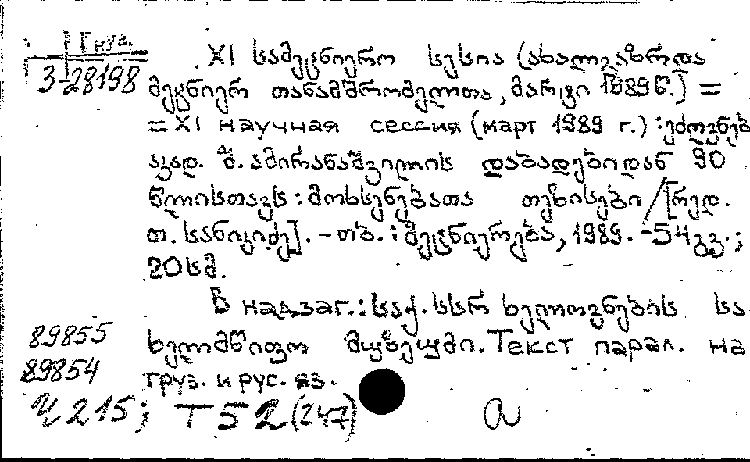 Груз.
3-28198
XI სამეცნიერო სესია (ახალგაზრდა
მეცნიერ თანამშრომელთა, მარტი 1989 წ.) =
= XI научная сессия (март 1989 г.) : ეძღვნებ
აკად. შ. ამირანაშვილის დაბადებიდან 90
წლისთავს : მოხსენებათა თეზისები / [რედ.
თ. სანიკიძე]. - თბ. : მეცნიერება, 1989. - 54 გვ. ;
20 სმ.
В надзаг.: საქ. სსრ ხელოვნების სა
ხელმწიფო მუზეუმი. Текст парал. на
груз. и рус. яз.
89855
89854
Ч 215; Т 52 (247) а